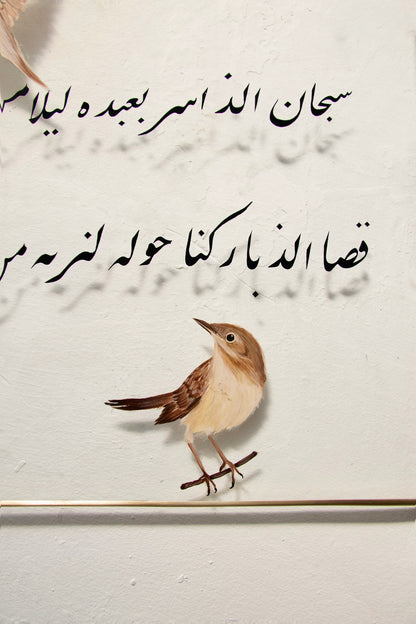 سبحان الذ اسر بعبده ليلا
قصا الذ باركنا حوله لنريه من